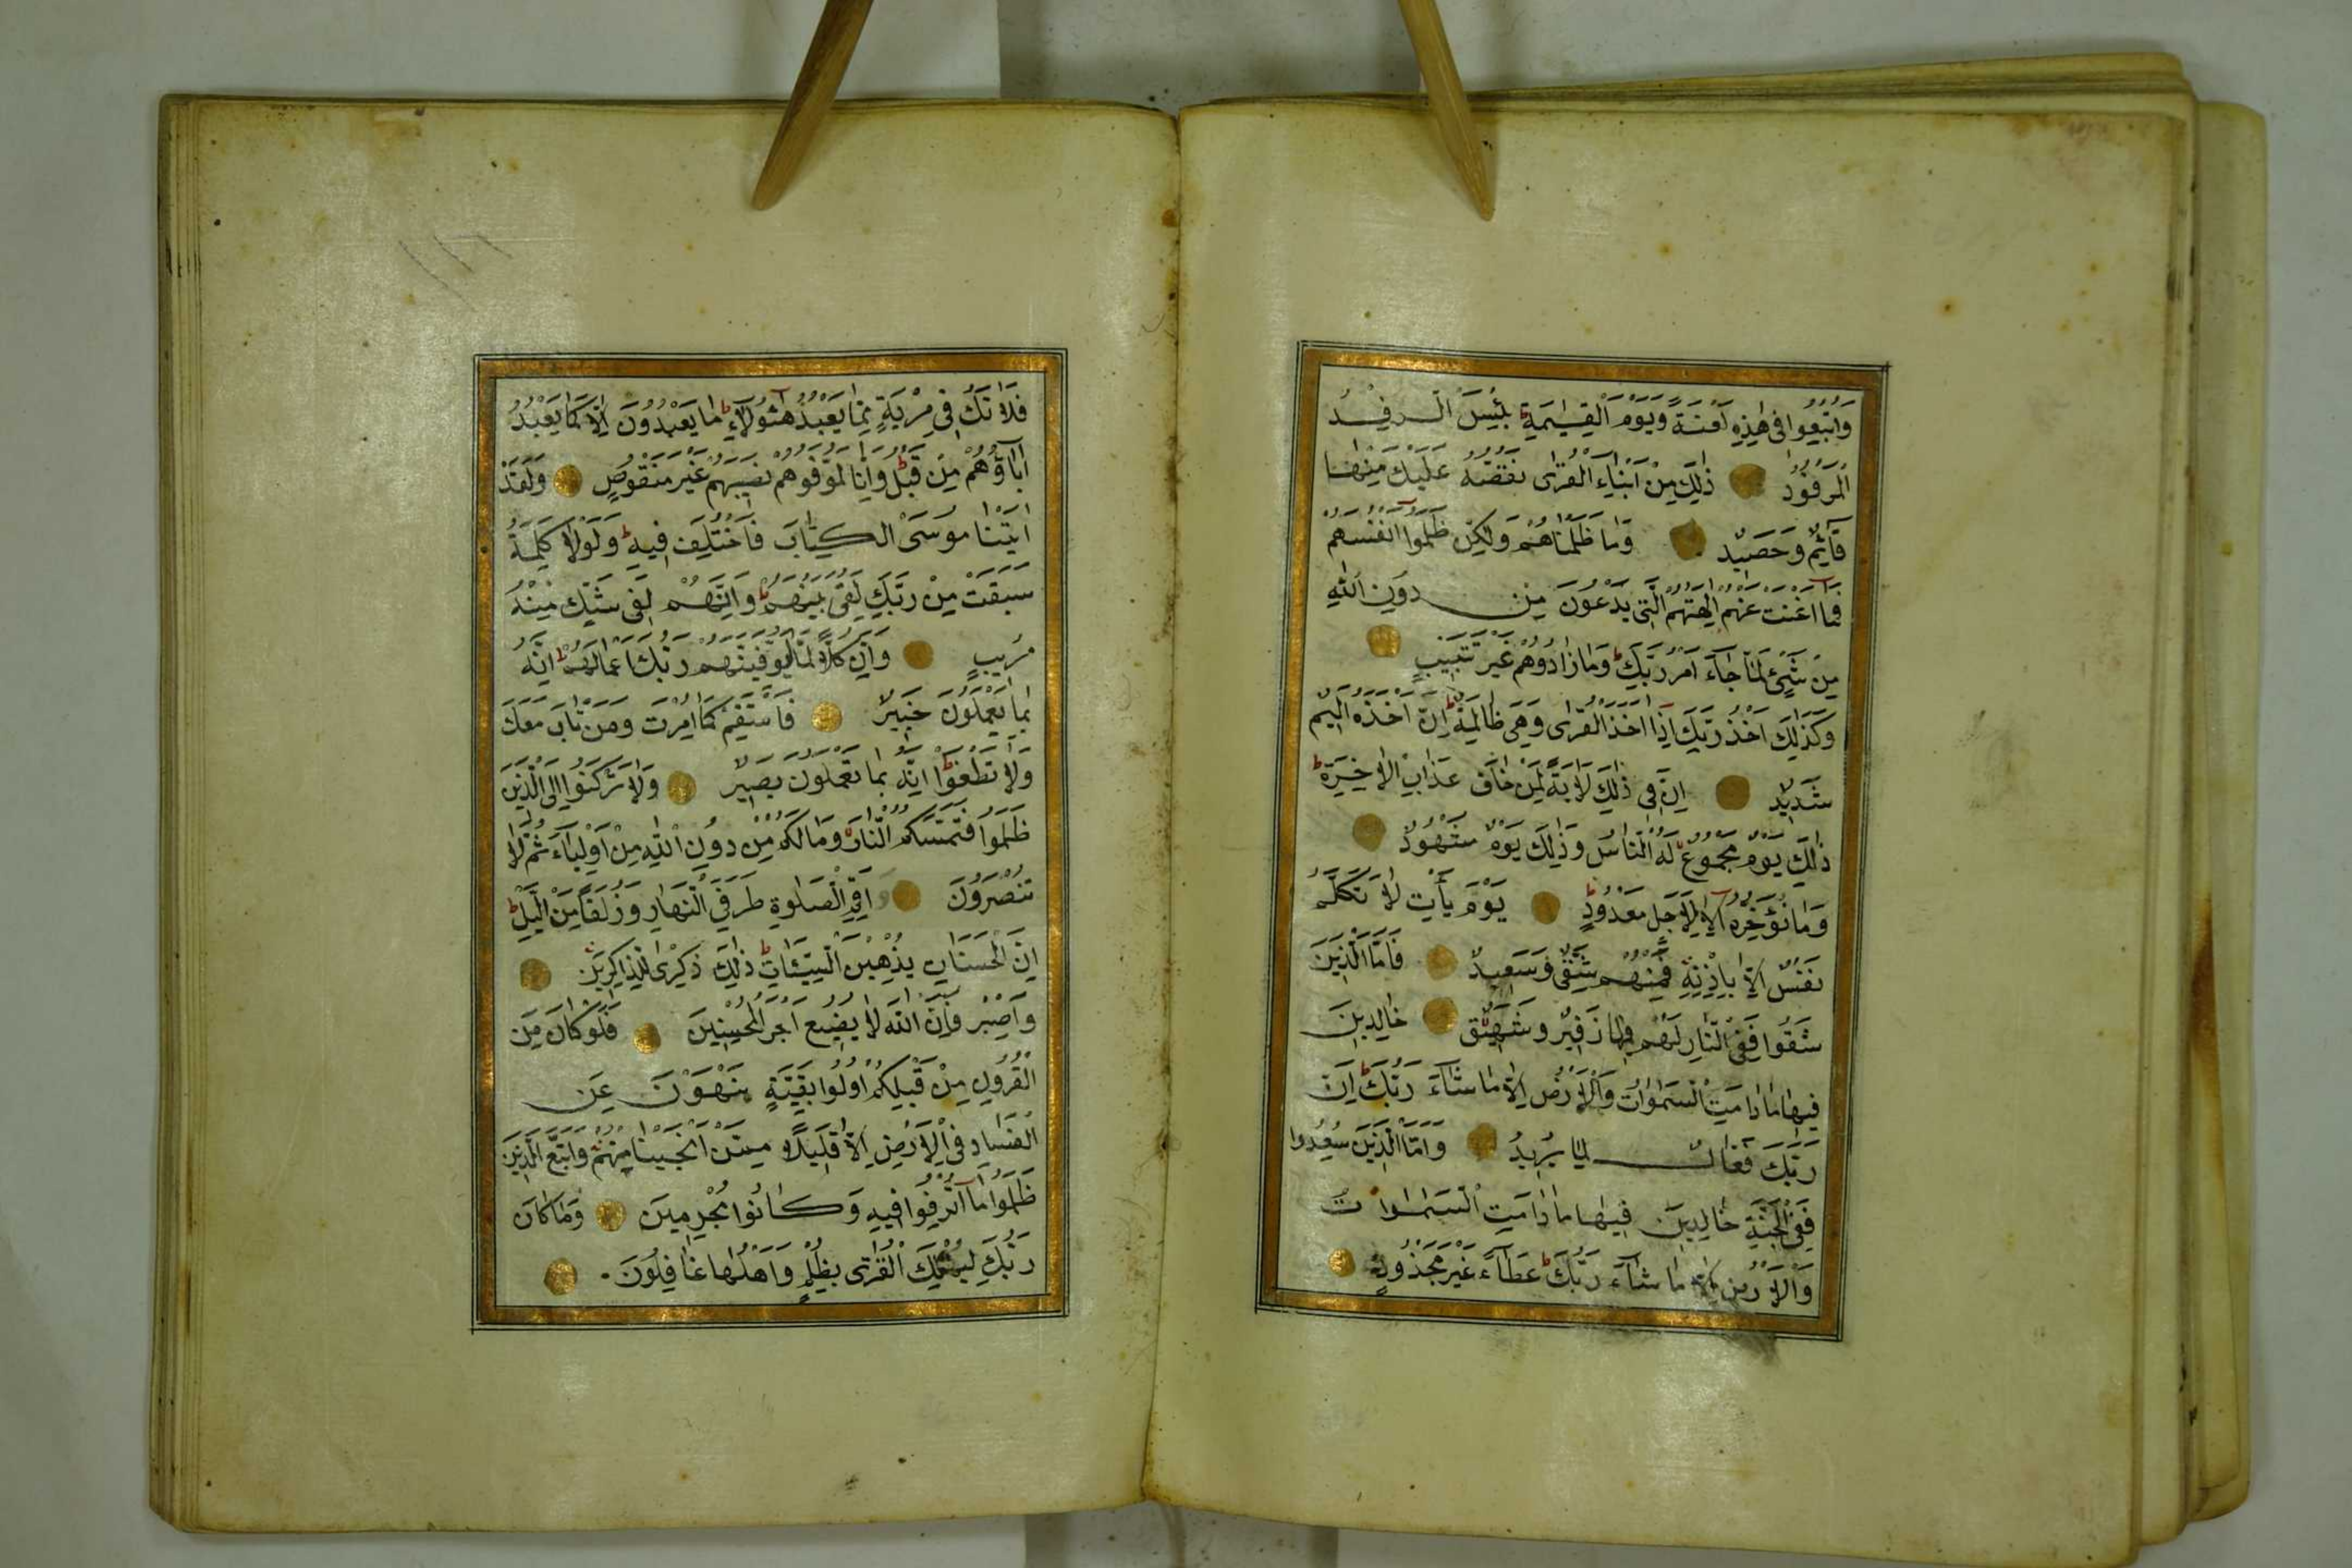 وَاُتْبِعُوا فِى هٰذِهِ لَعْنَةً وَيَوْمَ الْقِيٰمَةِ ط بِئْسَ الرِّفْدُ
الْمَرْفُودُ ذٰلِكَ مِنْ اَنْبَاءِ الْقُرٰى نَقُصُّهُ عَلَيْكَ مِنْهَا
قَآئِمٌ وَحَصِيدٌ وَمَا ظَلَمْنَاهُمْ وَلٰكِنْ ظَلَمُوا اَنْفُسَهُمْ
فَمَا اَغْنَتْ عَنْهُمْ اٰلِهَتُهُمُ الَّتِى يَدْعُونَ مِنْ دُونِ اللّٰهِ
مِنْ شَىْءٍ لَمَّا جَآءَ اَمْرُ رَبِّكَ ط وَمَا زَادُوهُمْ غَيْرَ تَتْبِيبٍ
وَكَذٰلِكَ اَخْذُ رَبِّكَ اِذَا اَخَذَ الْقُرٰى وَهِىَ ظَالِمَةٌ ط اِنَّ اَخْذَهُ اَلِيمٌ
شَدِيدٌ اِنَّ فِى ذٰلِكَ لَاٰيَةً لِمَنْ خَافَ عَذَابَ الْاٰخِرَةِ ط
ذٰلِكَ يَوْمٌ مَجْمُوعٌ لَهُ النَّاسُ وَذٰلِكَ يَوْمٌ مَشْهُودٌ
وَمَا نُؤَخِّرُهُ اِلَّا لِاَجَلٍ مَعْدُودٍ ط يَوْمَ يَأْتِ لَا تَكَلَّمُ
نَفْسٌ اِلَّا بِاِذْنِهِ فَمِنْهُمْ شَقِىٌّ وَسَعِيدٌ فَاَمَّا الَّذِينَ
شَقُوا فَفِى النَّارِ لَهُمْ فِيهَا زَفِيرٌ وَشَهِيقٌ خَالِدِينَ
فِيهَا مَا دَامَتِ السَّمٰوَاتُ وَالْاَرْضُ اِلَّا مَا شَآءَ رَبُّكَ ط اِنَّ
رَبَّكَ فَعَّالٌ لِمَا يُرِيدُ وَاَمَّا الَّذِينَ سُعِدُوا
فَفِى الْجَنَّةِ خَالِدِينَ فِيهَا مَا دَامَتِ السَّمٰوَاتُ
وَالْاَرْضُ اِلَّا مَا شَآءَ رَبُّكَ ط عَطَآءً غَيْرَ مَجْذُوذٍ
فَلَا تَكُ فِى مِرْيَةٍ مِمَّا يَعْبُدُ هٰٓؤُلَآءِ ط مَا يَعْبُدُونَ اِلَّا كَمَا يَعْبُدُ
اٰبَآؤُهُمْ مِنْ قَبْلُ ط وَاِنَّا لَمُوَفُّوهُمْ نَصِيبَهُمْ غَيْرَ مَنْقُوصٍ وَلَقَدْ
اٰتَيْنَا مُوسَى الْكِتَابَ فَاخْتُلِفَ فِيهِ ط وَلَوْلَا كَلِمَةٌ
سَبَقَتْ مِنْ رَبِّكَ لَقُضِىَ بَيْنَهُمْ ط وَاِنَّهُمْ لَفِى شَكٍّ مِنْهُ
مُرِيبٍ وَاِنَّ كُلًّا لَمَّا لَيُوَفِّيَنَّهُمْ رَبُّكَ اَعْمَالَهُمْ ط اِنَّهُ
بِمَا يَعْمَلُونَ خَبِيرٌ فَاسْتَقِمْ كَمَا اُمِرْتَ وَمَنْ تَابَ مَعَكَ
وَلَا تَطْغَوْا ط اِنَّهُ بِمَا تَعْمَلُونَ بَصِيرٌ وَلَا تَرْكَنُوا اِلَى الَّذِينَ
ظَلَمُوا فَتَمَسَّكُمُ النَّارُ وَمَا لَكُمْ مِنْ دُونِ اللّٰهِ مِنْ اَوْلِيَآءَ ثُمَّ لَا
تُنْصَرُونَ وَاَقِمِ الصَّلٰوةَ طَرَفَىِ النَّهَارِ وَزُلَفًا مِنَ الَّيْلِ ط
اِنَّ الْحَسَنَاتِ يُذْهِبْنَ السَّيِّئَاتِ ط ذٰلِكَ ذِكْرٰى لِلذَّاكِرِينَ
وَاصْبِرْ فَاِنَّ اللّٰهَ لَا يُضِيعُ اَجْرَ الْمُحْسِنِينَ فَلَوْلَا كَانَ مِنَ
الْقُرُونِ مِنْ قَبْلِكُمْ اُولُوا بَقِيَّةٍ يَنْهَوْنَ عَنِ
الْفَسَادِ فِى الْاَرْضِ اِلَّا قَلِيلًا مِمَّنْ اَنْجَيْنَا مِنْهُمْ وَاتَّبَعَ الَّذِينَ
ظَلَمُوا مَا اُتْرِفُوا فِيهِ وَكَانُوا مُجْرِمِينَ وَمَا كَانَ
رَبُّكَ لِيُهْلِكَ الْقُرٰى بِظُلْمٍ وَاَهْلُهَا غَافِلُونَ